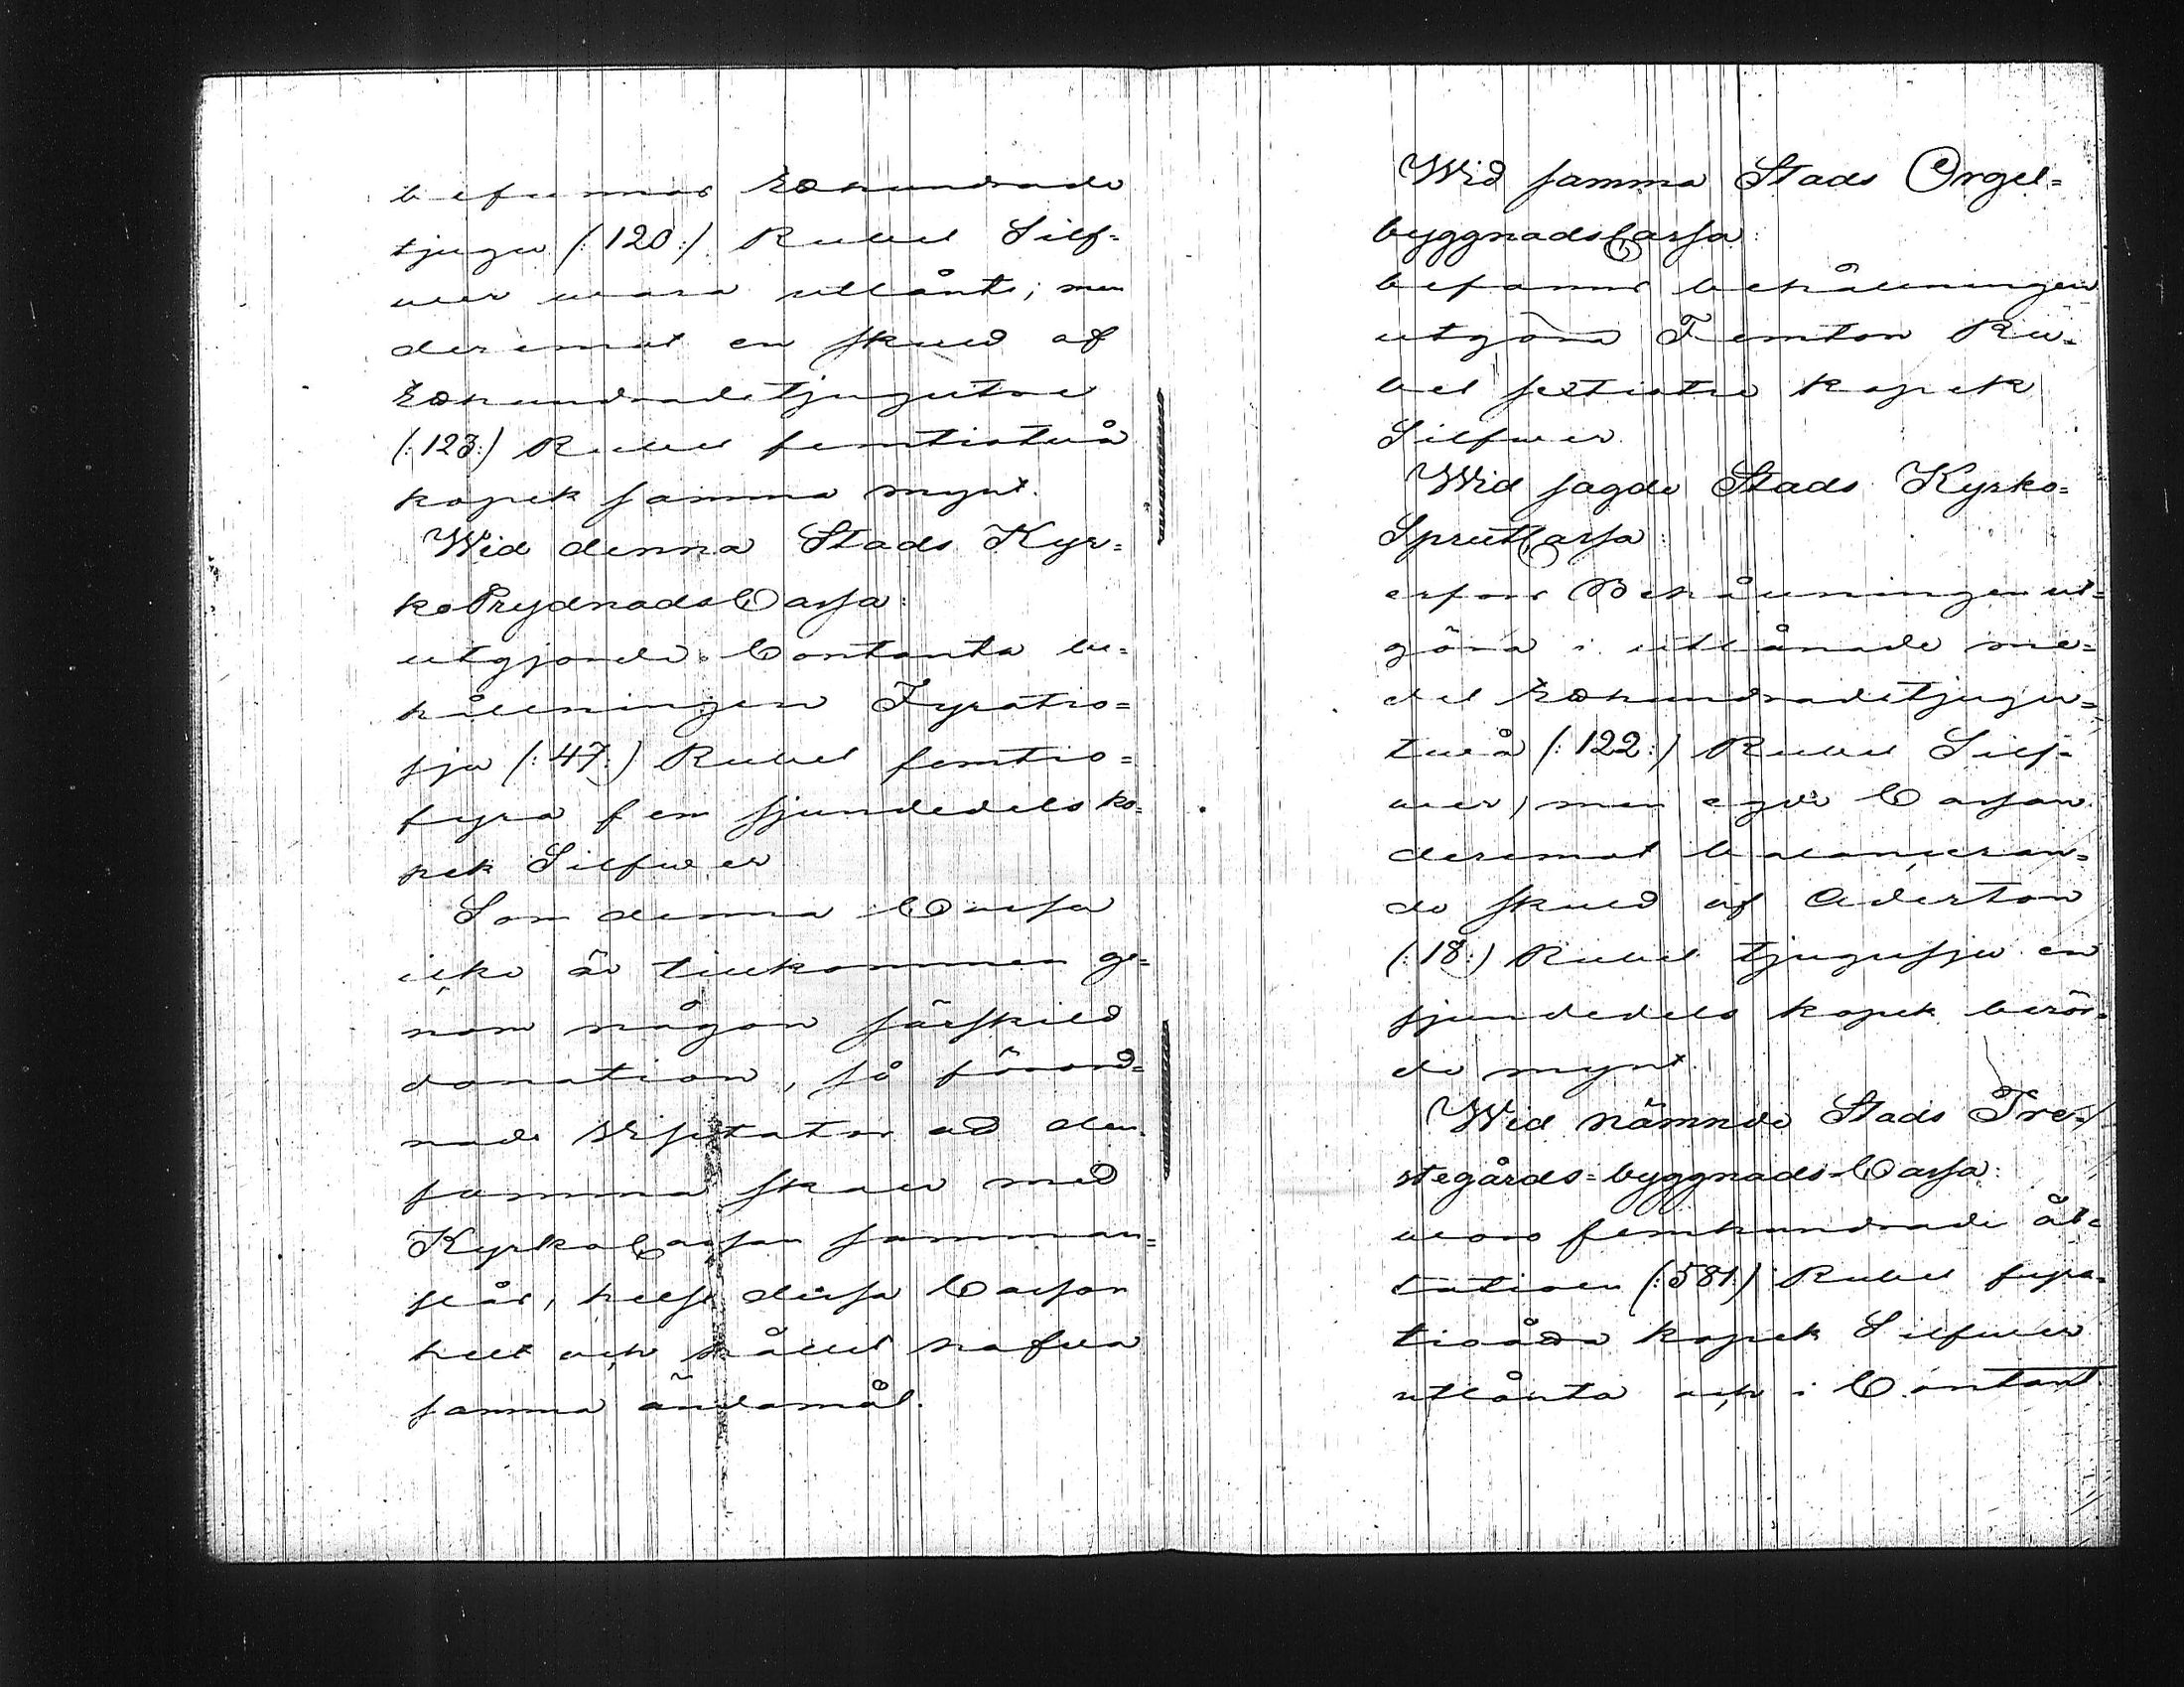 befunnos Etthundrade
tjugu (:120:) Rubel Silf=
wer wara utlånte; men
deremot en skuld af
Etthundradetjugutre
(:123:) Rubel femtiotwå
kopek samma mynt.
Wid denna Stads Kyr=
koPrydnadsCassa:
utgjorde Contanta be=
hållningen Fyratio=
sju (:47:) Rubel femtio=
fyra fem sjundedels ko=
pek Silfwer
Som denna Cassa
icke är tillkommen ge=
nom någon särskild
donation, så förord=
nade Visitator at den=
samma skall med
KyrkoCassan samman=
slås, helst dessa Cassor
helt och hållet hafwa
samma ändamål.
Wid samma Stads Orgel=
byggnadsCassa:
befanns behållningen
utgöra Femton Ru=
bel sextiotre kopek
Silfwer.
Wid sagde Stads Kyrko=
SprutCassa:
erfors Behållningen ut=
göra i utlånade me=
del Etthundradetjugu=
twå (:122:) Rubel Silf=
wer, men egde Cassan
deremot balanceran=
de skuld af Aderton
(:18:) Rubel tjugusju en
sjundedels kopek berör=
de mynt.
Wid nämnde Stads Pre=
stegårds=byggnads=Cassa:
woro femhundrade åt=
tatioen (:581:) Rubel fyra=
tioåtta kopek Silfwer
utlånta och i Contant